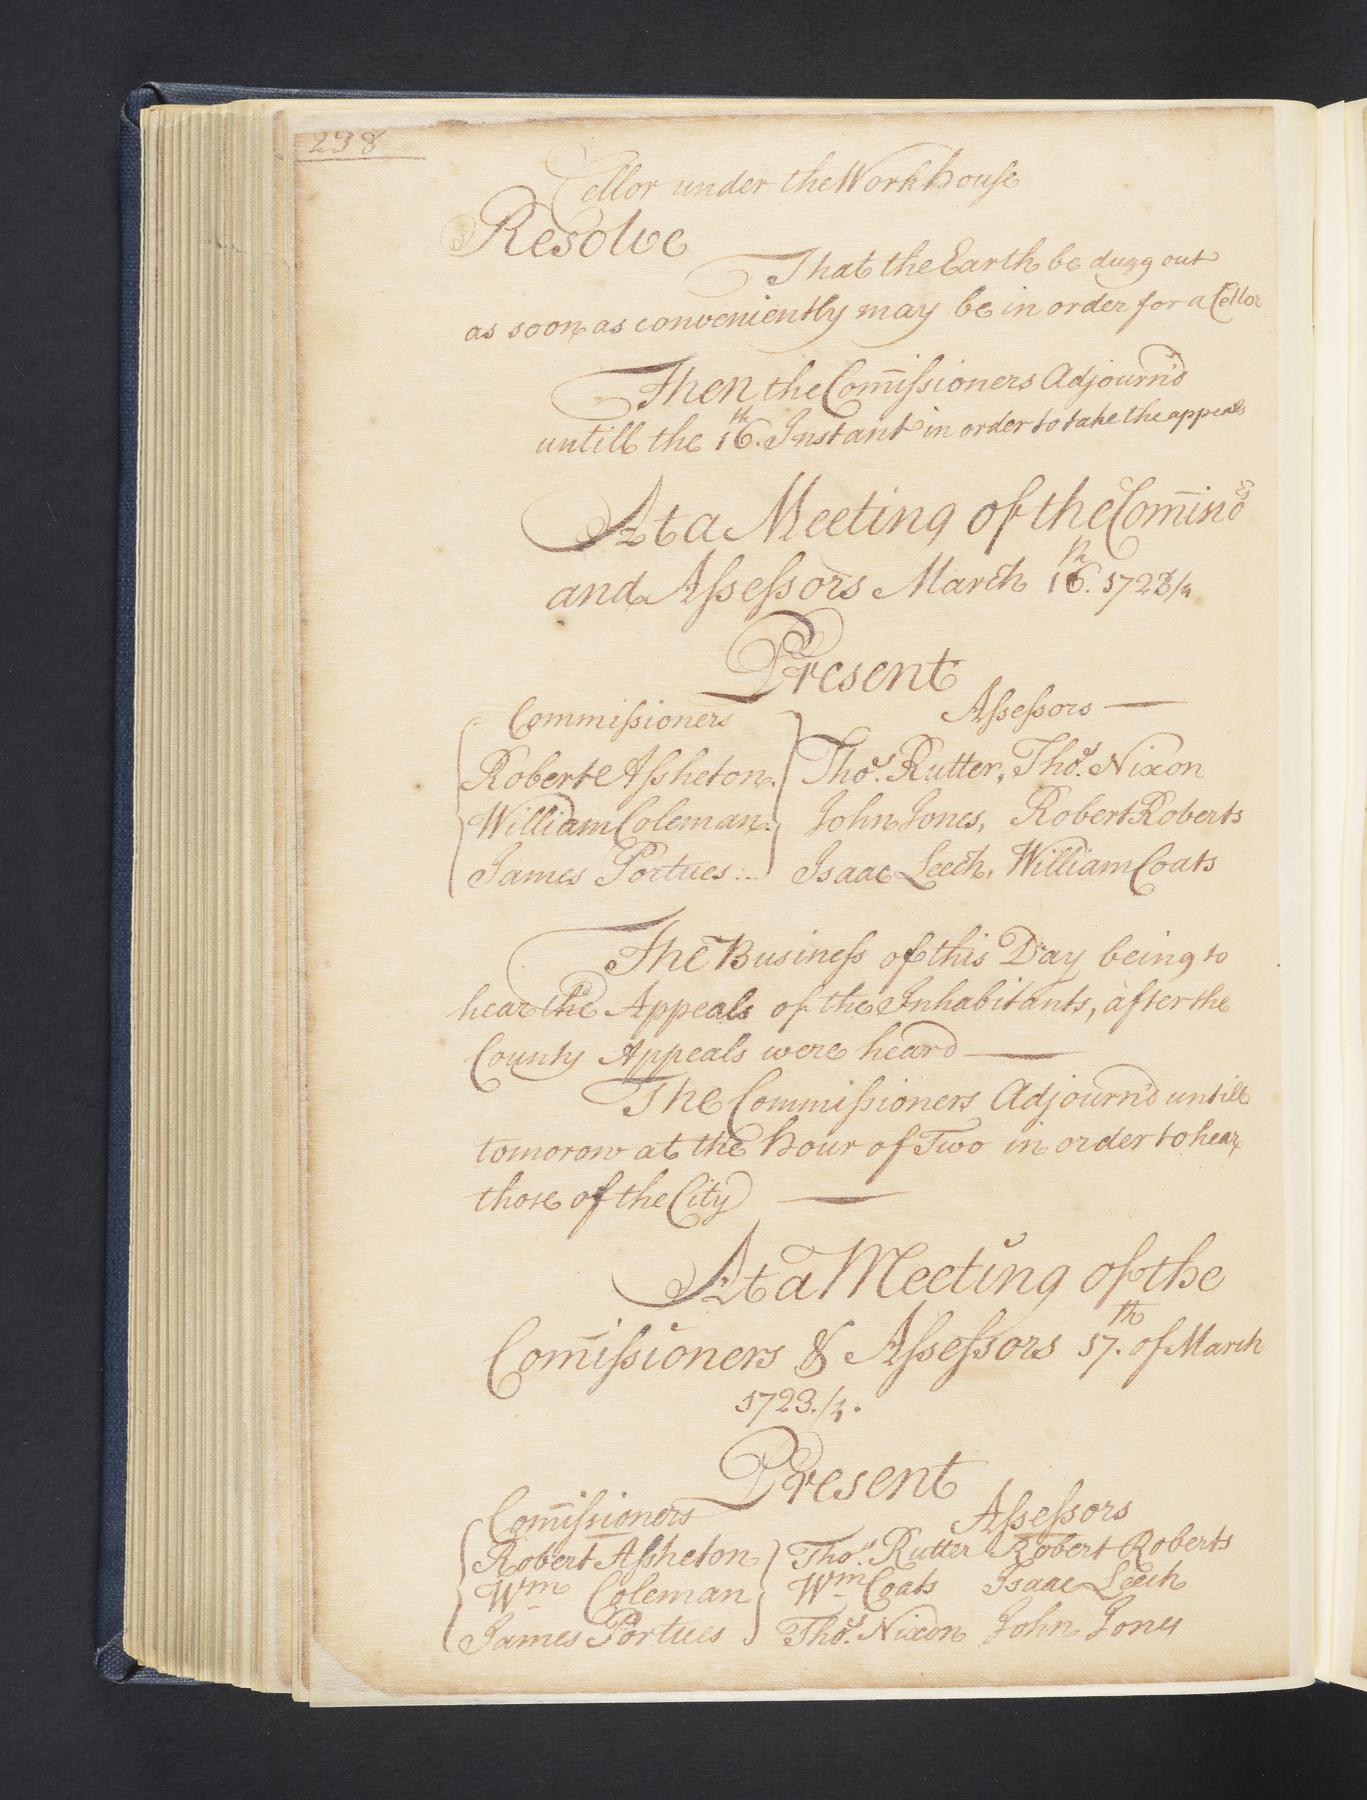 238
Cellor under the Workhouse
Resolve
That the Earth be dugg out
as soon as conveniently may be in order for a Cellor
Then the Com̄issioners Adjourn'd
untill the 16.th Instant in order to take the appeals
At a Meeting of the Com̄in's
and Assessors March 16.th 1723/4
Present
Commissioners Assessors —
Robert Assheton. Thos. Rutter, Thos. Nixon
William Coleman. John Jones, Robert Roberts
James Portues: .. Isaac Leech, William Coats
The Business of this Day being to
hear the Appeals of the Inhabitants, after the
County Appeals were heard —
The Commissioners Adjourn'd untill
tomorow at the hour of Two in order to hear
those of the City —
At a Meeting of the
Com̄issioners & Assessors 17.th of March
1723./4.
Present
Com̄issioners Assessors
Robert Assheton Thos. Rutter Robert Roberts
Wm Coleman Wm Coats Isaac Leech
James Portues Thos. Nixon John Jones